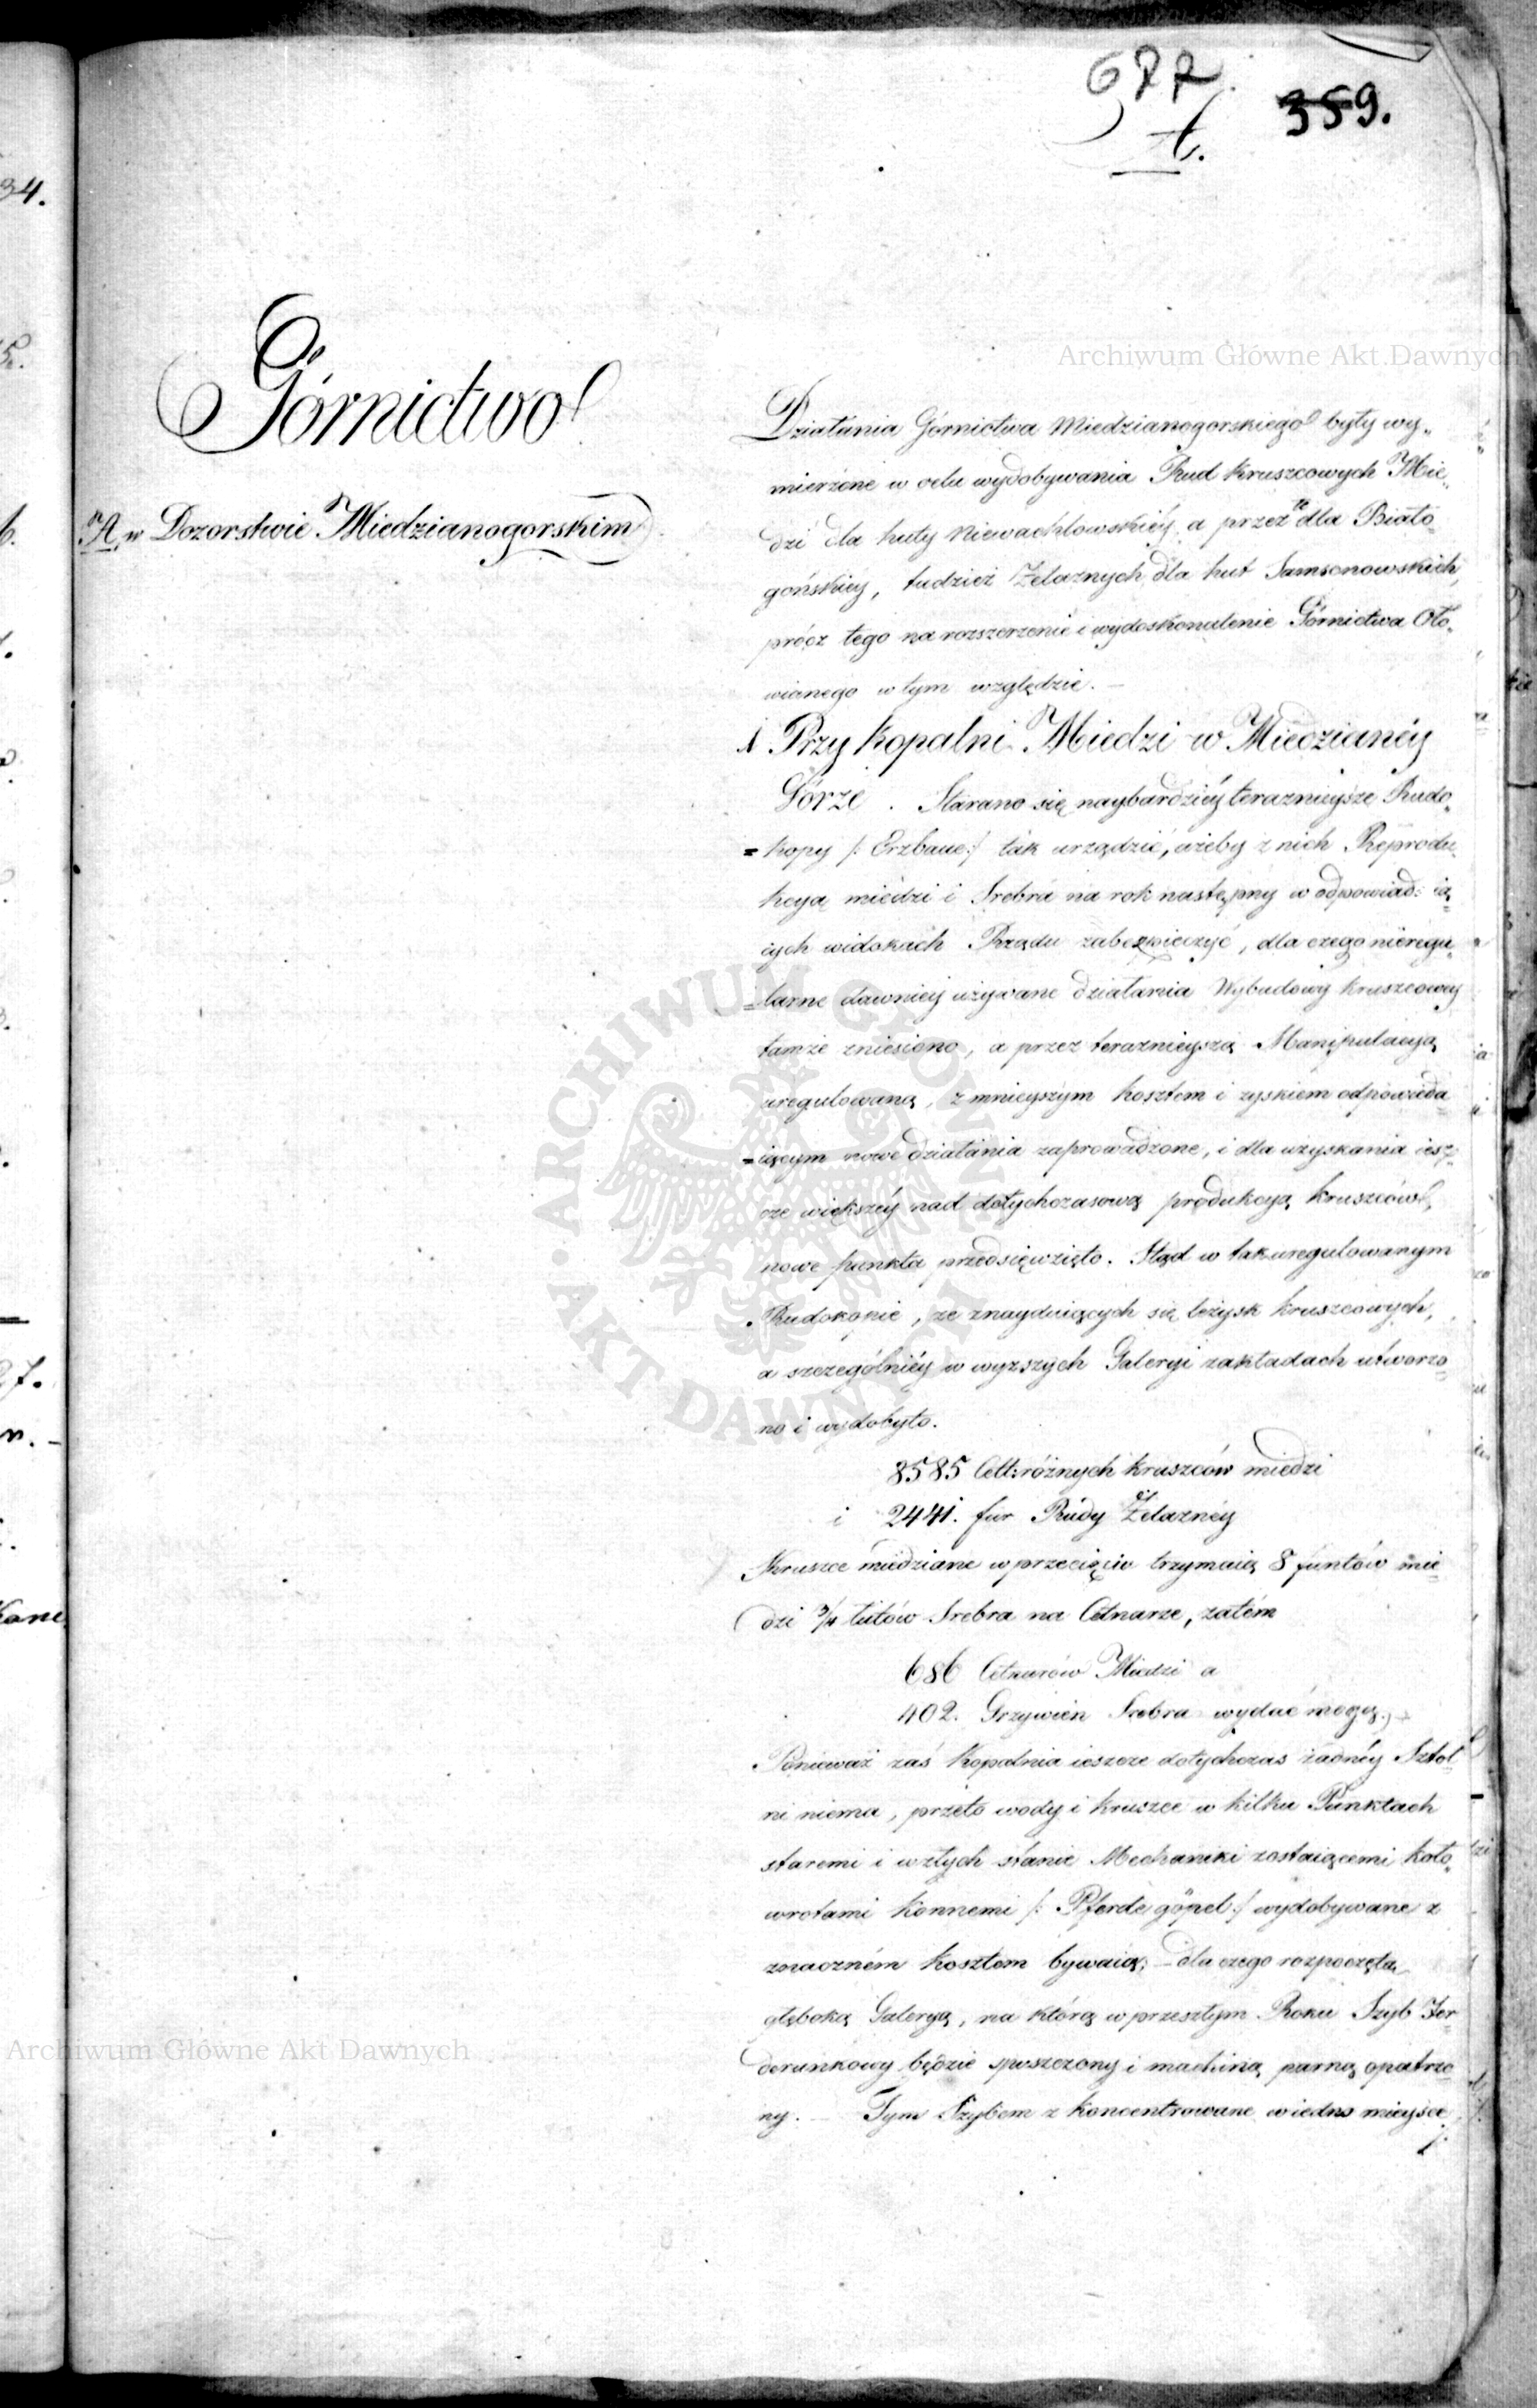 677.
359.
Górnictwo
A, w Dozorstwie Miedzianogorskim
Działania Górnictwa Miedzianogorskiego były wy„
mierzone w celu wydobywania Rud kruszcowych Mie„
dzi dla huty Niewachlowskiéy a przez to dla Biało„
gońskiey, tudzież Żelaznych dla hut Samsonowskich,
prócz tego na rozszerzenie i wydoskonalenie Górnictwa Oło„
wianego w tym względzie. —
1 Przy kopalni Miedzi w Miedzianéy
Górze . Starano się naybardziéy teraznieysze Rudo„
=kopy /: Erzbaue :/ tak urządzić, ażeby z nich Reprodu„
kcyą miedzi i Srebra na rok następny w odpowiada ią=
cych widokach Rządu zabezpieczyć, dla czego nieregu„
=larne dawniéy używane działania Wybudowy kruszcowey
tamże zniesiono, a przez teraznieyszą Manipulacyą
uregulowaną, z mnieyszym kosztem i zyskiem odpowiada
=iącym nowe działania zaprowadzone, i dla uzyskania iesz=
cze większéy nad dotychczasową produkcyą kruszców,
nowe punkta przedsięwzięto. Stąd w tak uregulowanym
Rudokopie, ze znayduiących się leżysk kruszcowych,
a szczególniéy w wyższych Galeryi zakładach utworzo=
no i wydobyto.
8585 Cett: różnych kruszców miedzi
i 2441. fur Rudy Żelaznéy
Kruszce miedziane w przecięciu trzymaią 8 funtów mie=
dzi 3/4 łutów Srebra na Cetnarze, zatém
686 Cetnarów Miedzi a
402. Grzywien Srebra wydać mogą.
Ponieważ zaś Kopalnia ieszcze dotychczas żadnéy Sztol=
ni niema, przeto wody i kruszce w kilku Punktach
staremi i w złych stanie Mechaniki zostaiącemi koło„
wrotami konnemi /: Pferde göpel :/ wydobywane z
znaczném kosztem bywaią; — dla czego rozpoczęta
głęboką Galeryą, na którą w przeszłym Roku Szyb For
derunkowy będzie spuszczony i machiną parną opatrzo=
ny. — Tym Szybem z koncentrowane w iedno mieysce